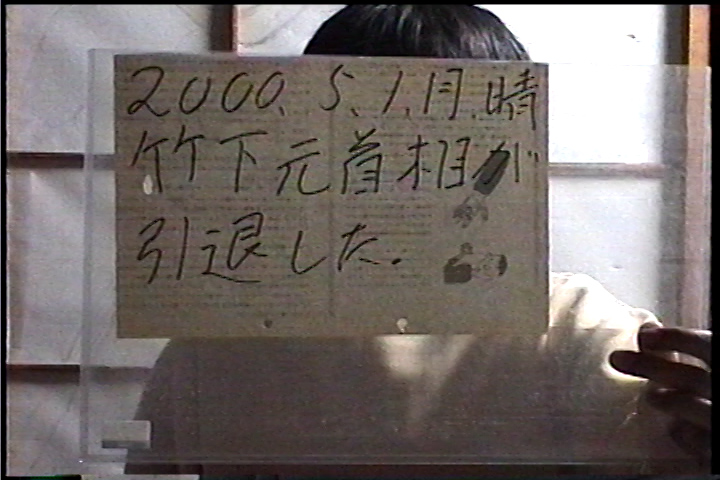 2000、5、1、月、晴
竹下元首相が
引退した.